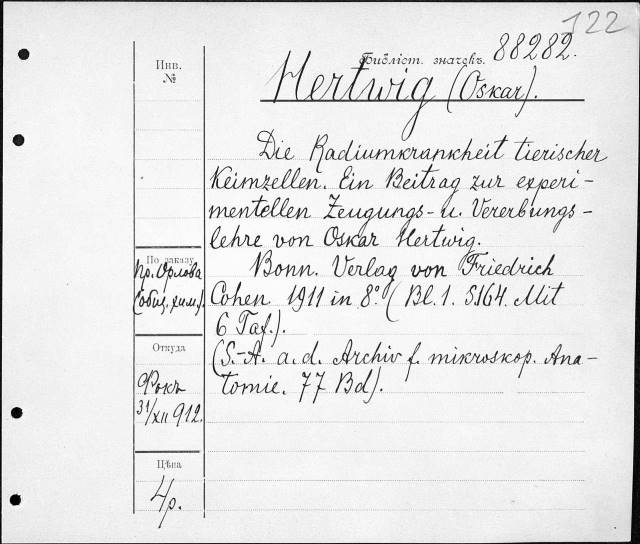 122
Библіот. значекъ. 88282.
Инв.
№
Hertwig (Oskar).
Die Radiumkrankheit tierischer
Keimzellen. Ein Beitrag zur experi-
mentellen Zeugungs- u. Vererbungs-
lehre von Oskar Hertwig.
По заказу
пр. Орлова
(общ. хим.).
Bonn. Verlag von Friedrich
Cohen 1911 in 8º. (Bl. 1. S164. Mit
6 Taf.).
(S.-A. a. d. Archiv f. mikroskop. Ana-
tomie. 77 Bd).
Откуда
Фокъ
31/XII 912.
Цѣна
4р.